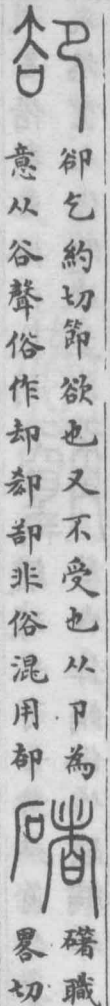 卻
卻乞約切節欲也又不受也从卩為
意从谷聲俗作却非俗混用郤
職
畧切